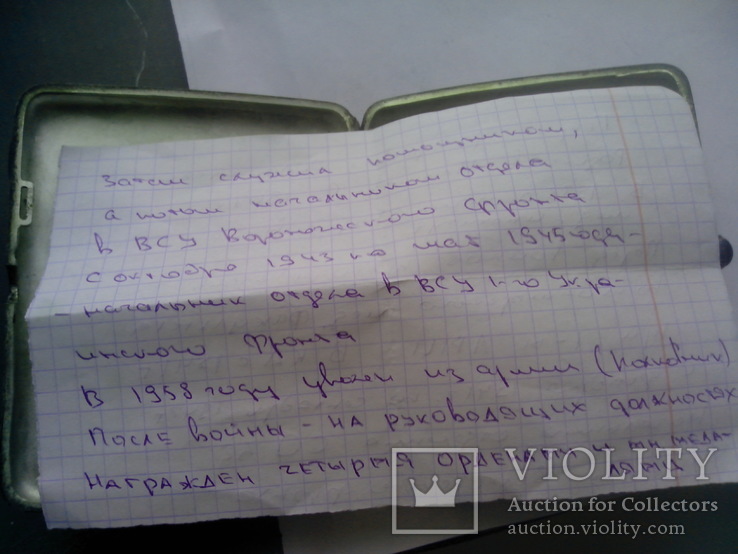 Затем служил помощником,
а потом начальником отдела
в ВСУ Воронежского фронта
с октября 1943 по май 1945 года -
- начальник отдела в ВСУ 1-го Укра-
инского фронта
В 1958 году уволен из армии (Полковник)
После войны - на руководящих должностях
НАГРАЖДЕН ЧЕТЫРЬМЯ ОРДЕНАМИ И МЕДА-
ЛЯМИ
VIOLITY
Auction for Collectors
auction.violity.com